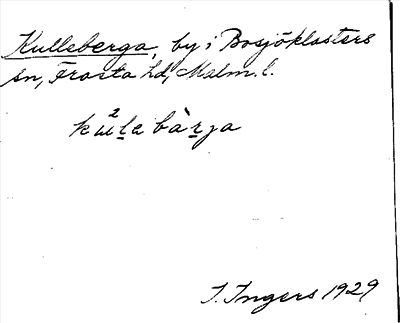 Kulleberga, by i Bosjöklosters
sn, Frosta hd, Malm. l.
I. Ingers 1929